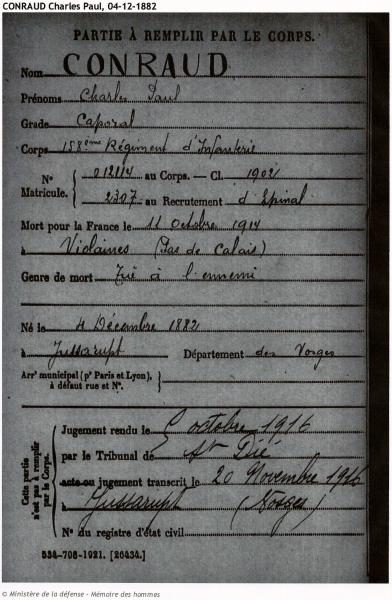 CONRAUD Charles Paul, 04-12-1882
PARTIE À REMPLIR PAR LE CORPS.
Nom CONRAUD
Prénoms Charles Paul
Grade Caporal
Corps 158eme Régiment d'Infanterie
N° 012114 au Corps. — Cl. 1902
Matricule. 2307 au Recrutement d'Epinal
Mort pour la France le 11 Octobre 1914
à Violaines (Pas de Calais)
Genre de mort Tué à l'ennemi
Né le 4 Décembre 1882
à Jussarupt Département des Vosges
Arrt municipal (pr Paris et Lyon),
à défaut rue et N°.
Cette partie
n'est pas à remplir
par le Corps.
Jugement rendu le 5 octobre 1916
par le Tribunal de St Dié
acte ou jugement transcrit le 20 Novembre 1916
à Jussarupt (Vosges)
N° du registre d'état civil
534-708-1921. [26434.]
© Ministère de la défense - Mémoire des hommes